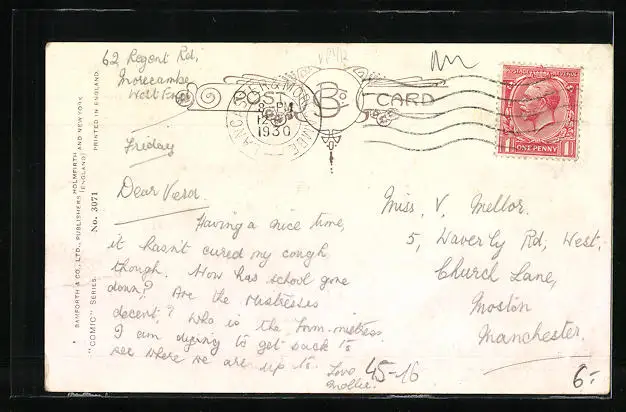 62 Regent Rd,
Morecambe
West End
POST CARD
B & Co
LANCASTER & MORECAMBE
8-PM
1930
POSTAGE REVENUE
ONE PENNY
1 1
Friday
Dear Vera.
Having a nice time,
it hasn't cured my cough
though. How has school gone
down? Are the mistresses
decent? Who is the form-mistress.
I am dying to get back to
see where we are up to.
Love
Mollie.
45-16
Miss. V. Mellor.
5, Waverly Rd, West.
Church Lane,
Moston
Manchester.
6.-
BAMFORTH & CO., LTD., PUBLISHERS, HOLMFIRTH (ENGLAND) AND NEW YORK
"COMIC" SERIES. No. 3071 PRINTED IN ENGLAND.